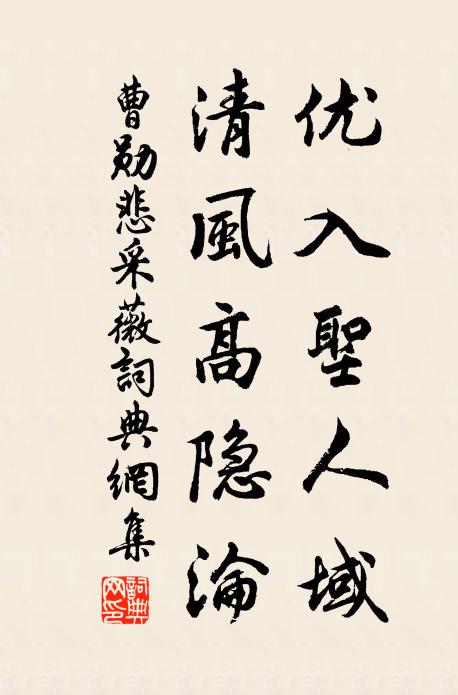 优入聖人域
清風高隐淪
曹勛悲采薇詞典網集
詞典网印